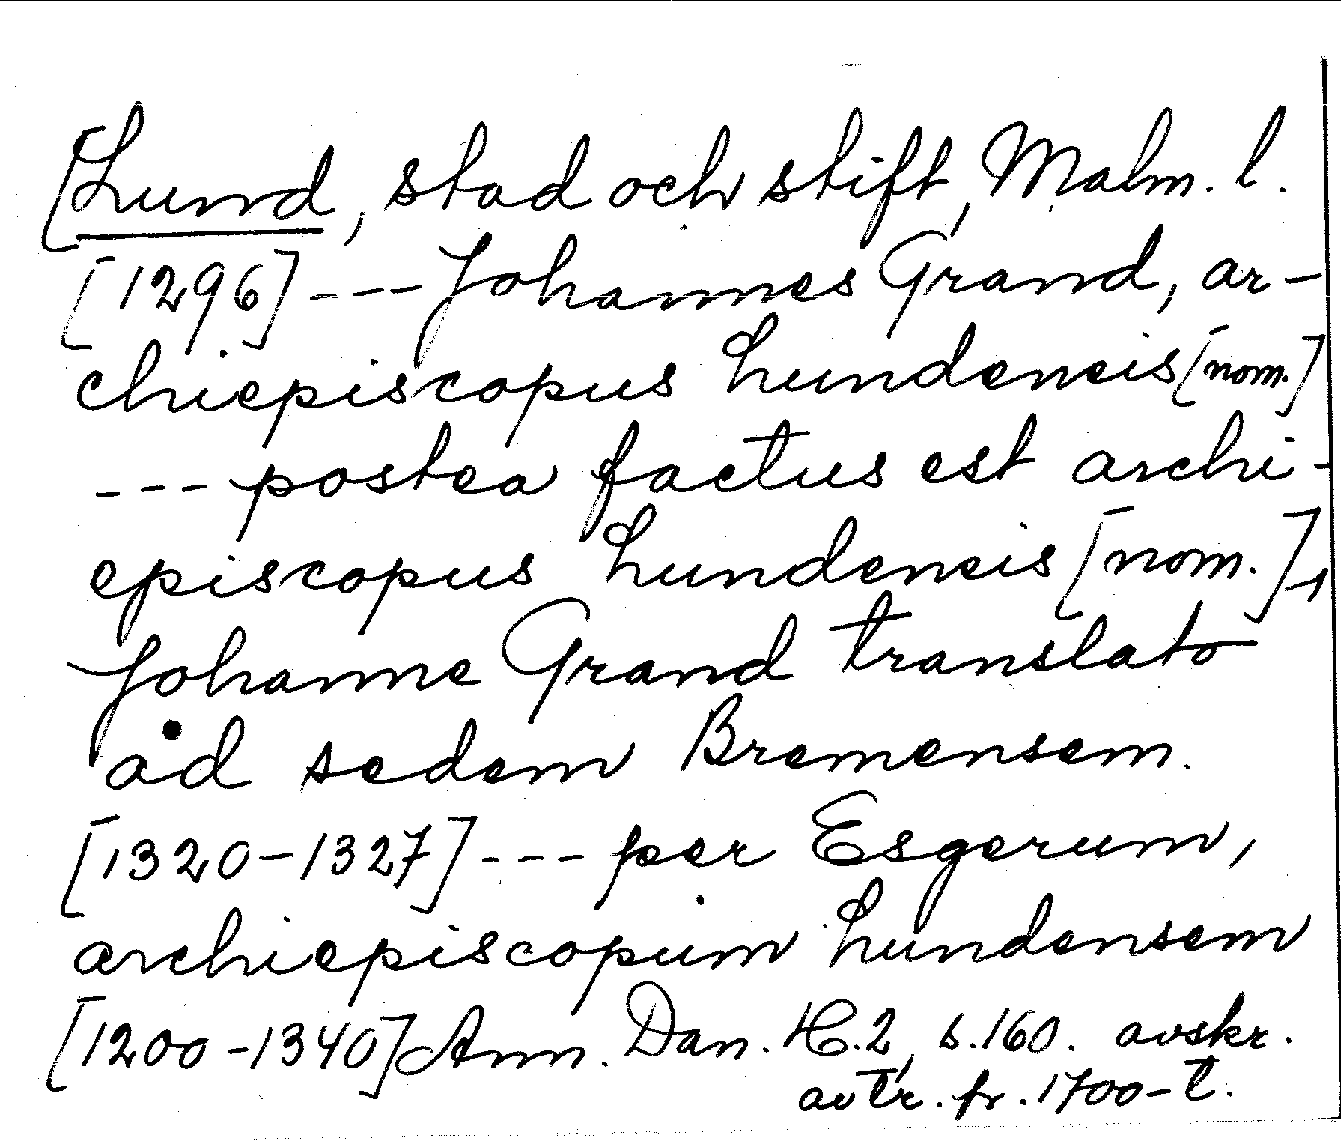 [Lund, stad och stift, Malm. l.
[1296] --- Johannes Grand, ar-
chiepiscopus Lundeneis [nom.]
--- postea factus est archi-
episcopus Lundeneis [nom.],
Johanne Grand translato
ad sedem Bremensem.
[1320-1327] --- per Esgerum,
archiepiscopum Lundensem
[1200-1340] Ann. Dan. H. 2, s. 160. avskr.
av tr. fr. 1700-t.